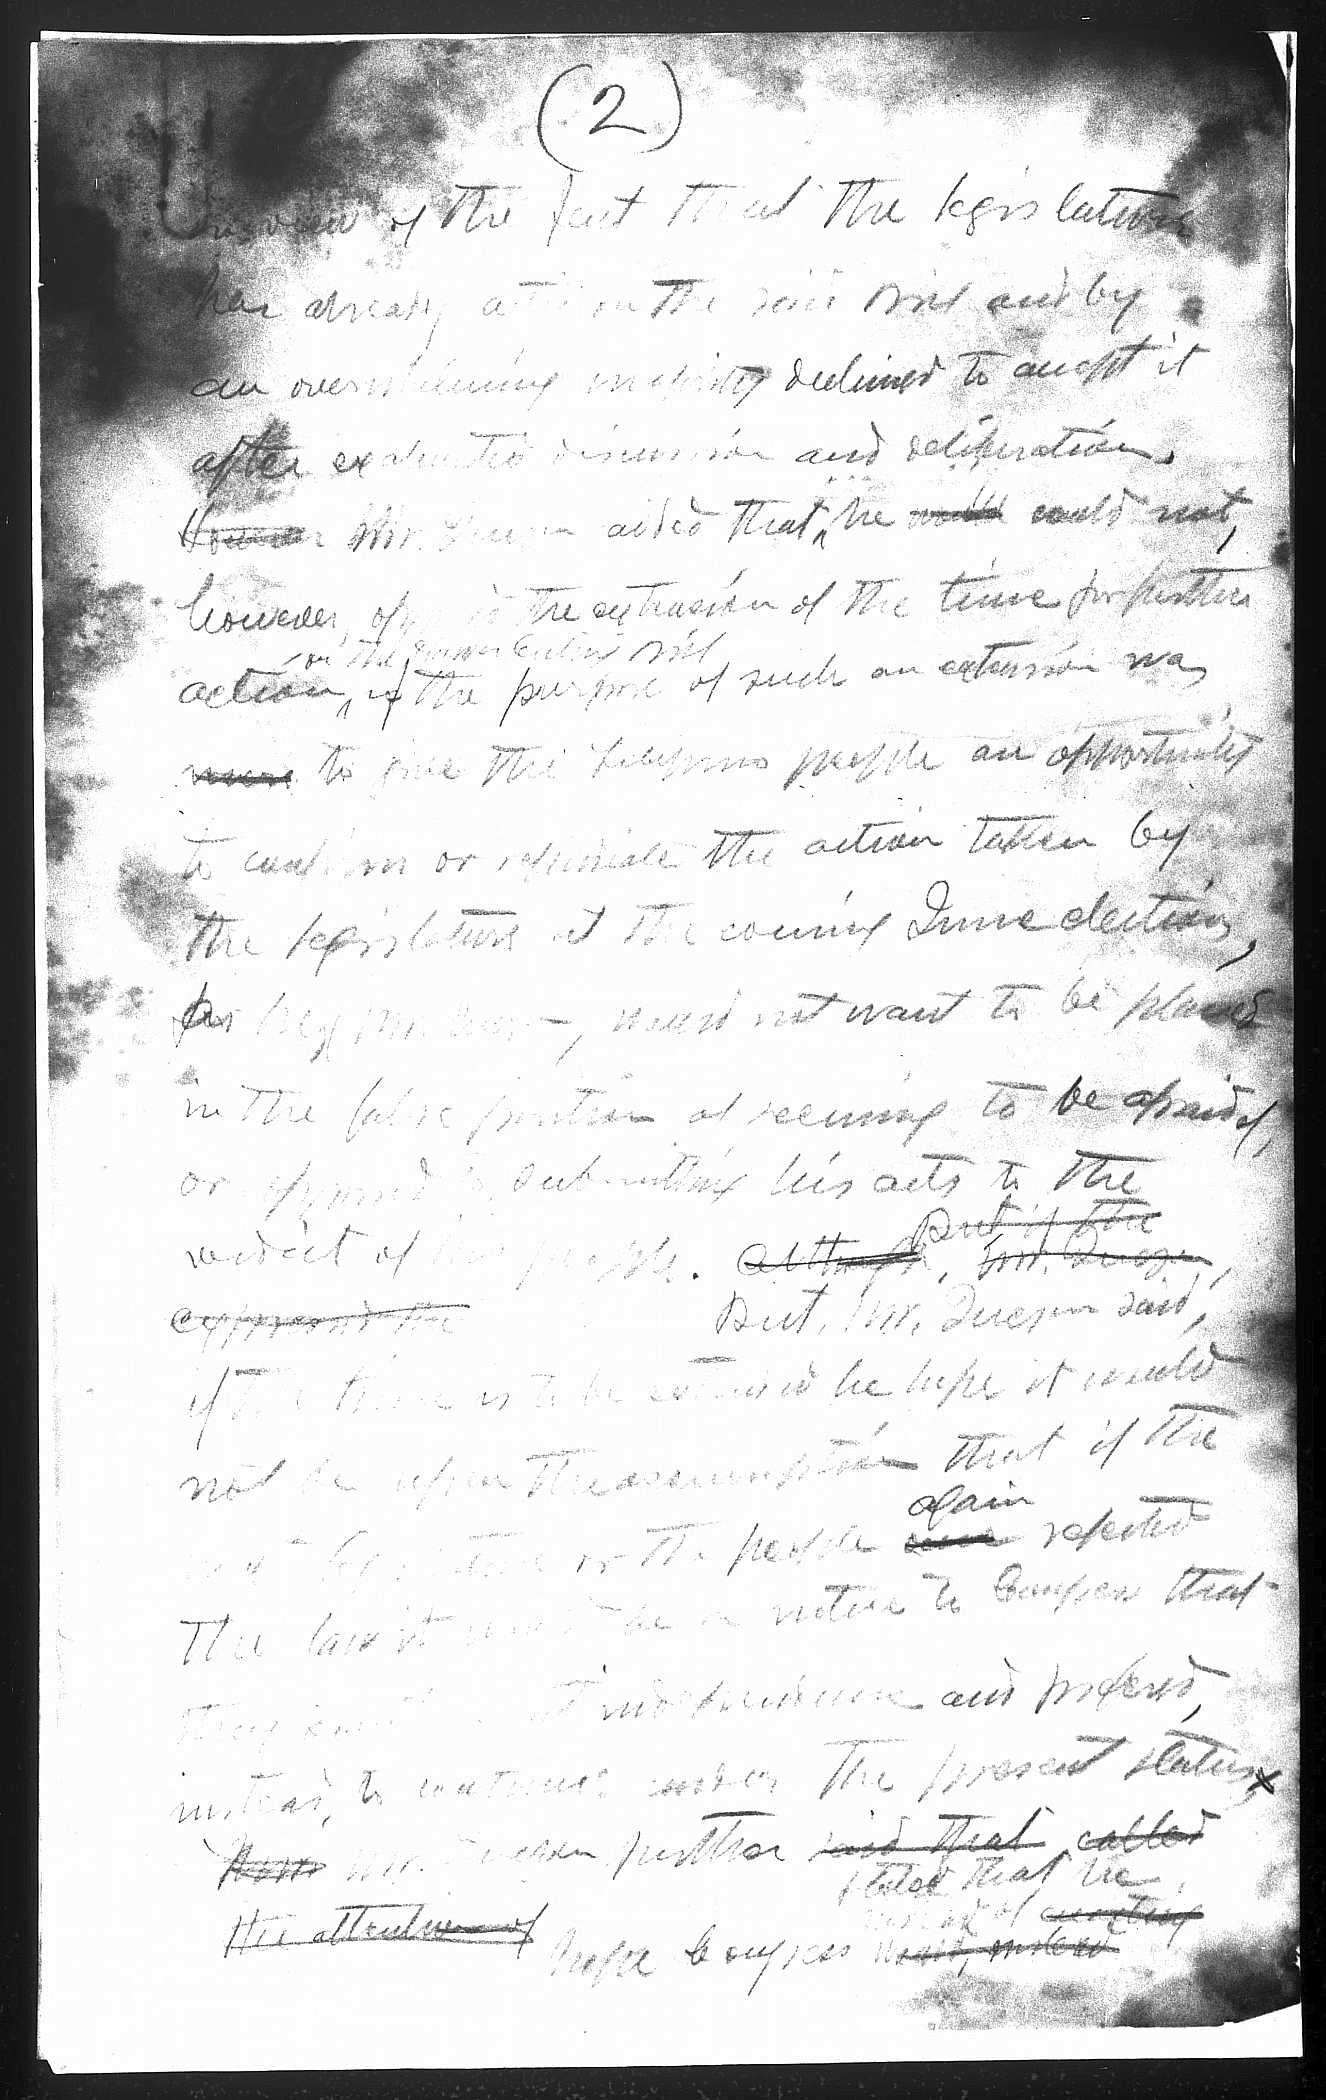 (2)
in view of the fact that the legislature
has already acted on the said bill and by
an overwhelming majority declined to accept it
after exhaustive discussion and deliberation.
However Mr. Quezon added that he would could not,
however, oppose the extension of the time for further
on the bill
action, if the purpose of such an extension was
were to give the Filipino people an opportunity
to confirm or repudiate the action taken by
the legislature at the coming June election,
for he, Mr. Quezon, would not want to be placed
in the false position of seeming to be afraid of,
or opposed to submitting his acts to the
But if the
verdict of his people. Although, Mr. Quezon,
expressed the But, Mr. Quezon said,
if the time is to be extended he hope it would
not be upon the assumption that if the
again
legislature or the people once rejected
the law it would be a notice to Congress that
they want independence and prefered,
instead, to continue under the present status
Mr. Quezon further said that called
stated that he,
instead of
the attention of hope Congress would, instead